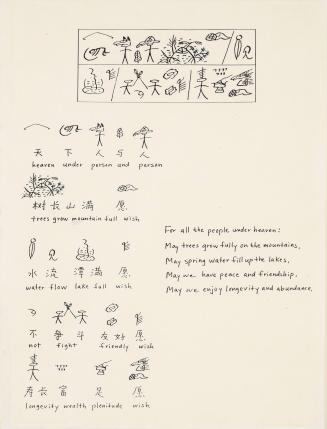 天 下 人 与 人
heaven under person and person
树 长 山 满 愿
trees grow mountain full wish
水 流 潭 满 愿
water flow lake full wish
不 争 斗 友 好 愿
not fight friendly wish
寿 长 富 足 愿
longevity wealth plenitude wish
For all the people under heaven:
May trees grow fully on the mountains,
May spring water fill up the lakes,
May we have peace and friendship,
May we enjoy longevity and abundance.